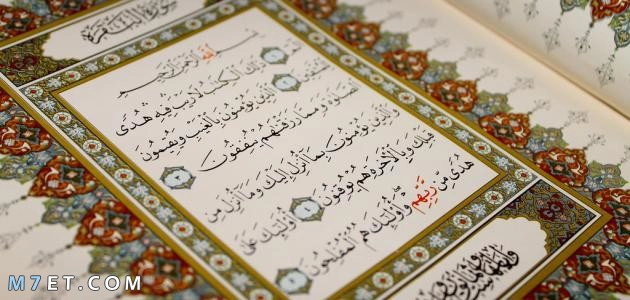 سُورَةُ الْبَقَرَةِ
بِسْمِ اللهِ الرَّحْمٰنِ الرَّحِيمِ
الٓمٓ ﴿١﴾ ذٰلِكَ الْكِتٰبُ لَا رَيْبَ فِيهِ هُدًى
لِلْمُتَّقِينَ ﴿٢﴾ الَّذِينَ يُؤْمِنُونَ بِالْغَيْبِ وَيُقِيمُونَ
الصَّلٰوةَ وَمِمَّا رَزَقْنٰهُمْ يُنْفِقُونَ ﴿٣﴾
وَالَّذِينَ يُؤْمِنُونَ بِمَا أُنْزِلَ إِلَيْكَ وَمَا أُنْزِلَ مِنْ
قَبْلِكَ وَبِالْاٰخِرَةِ هُمْ يُوقِنُونَ ﴿٤﴾ أُولٰئِكَ عَلٰى
هُدًى مِنْ رَبِّهِمْ وَأُولٰئِكَ هُمُ الْمُفْلِحُونَ ﴿٥﴾
M7ET.COM